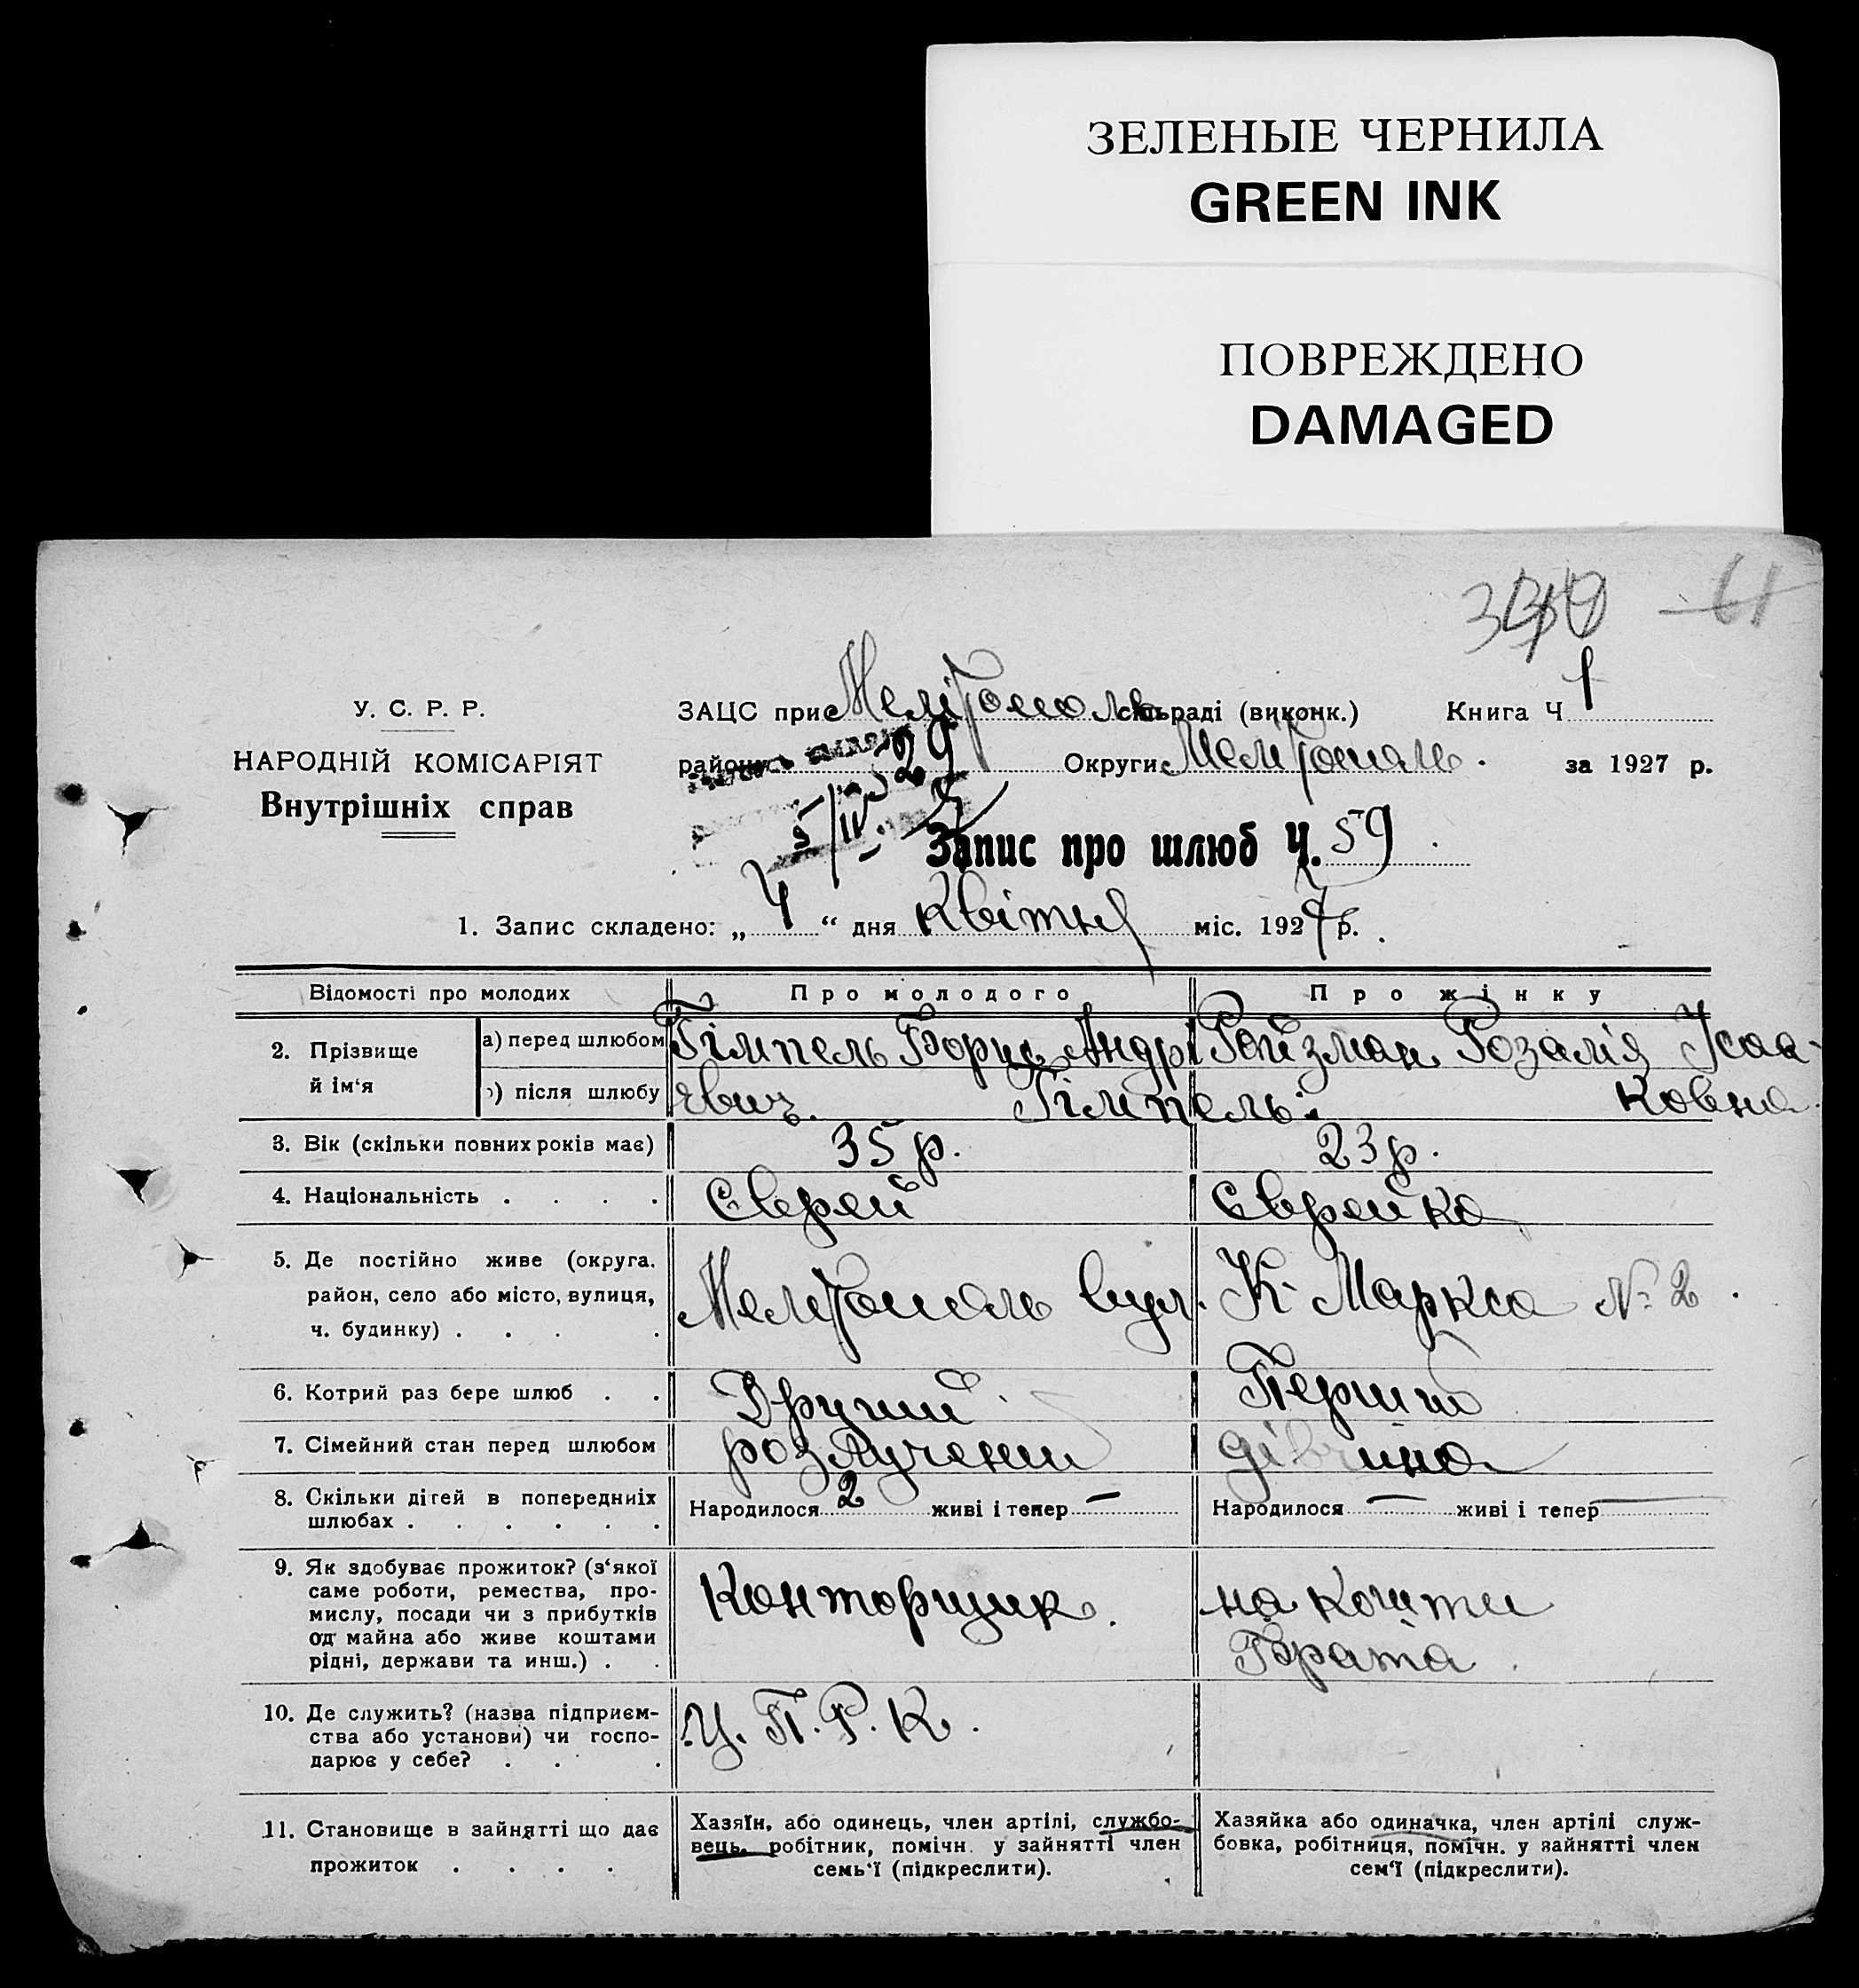 ЗЕЛЕНЫЕ ЧЕРНИЛА
GREEN INK
ПОВРЕЖДЕНО
DAMAGED
61
У. С. Р. Р.
НАРОДНІЙ КОМІСАРІЯТ
Внутрішніх справ
ЗАЦС при Мелітополь сільраді (виконк.) Книга Ч 1
району 29 Округи Мелітополь. за 1927 р.
5/IV
Запис про шлюб Ч. 59
1. Запис складено: „ 4 “ дня Квітня міс. 1927 р.
Відомості про молодих Про молодого Про жінку
2. Прізвище й ім‘я а) перед шлюбом Гімпель Борис Андрі Ройзман Розалія Ісаа-
) після шлюбу євич. Гімпель. ковна.
3. Вік (скільки повних років має) 35 р. 23 р.
4. Національність . . . . Єврей Єврейка
5. Де постійно живе (округа.
район, село або місто, вулиця, Мелітополь вул. К. Маркса № 2.
ч. будинку) . . . .
6. Котрий раз бере шлюб . . Другий Перший
7. Сімейний стан перед шлюбом розлучений дівчина
8. Скільки дітей в попередниіх Народилося 2 живі і тепер — Народилося — живі і тепер —
шлюбах . . . . . .
9. Як здобуває прожиток? (з‘якої
саме роботи, ремества, про- Конторщик. на кошти
мислу, посади чи з прибутків
од майна або живе коштами Брата.
рідні, держави та инш.) . .
10. Де служить? (назва підприєм- Ц. П. Р. К.
ства або установи) чи госпо-
дарює у себе? . . .
11. Становище в зайнятті що дає Хазяїн, або одинець, член артілі, службо- Хазяйка або одиначка, член артілі служ-
вець, робітник, помічн. у зайнятті член бовка, робітниця, помічн. у зайнятті член
прожиток . . . . семь‘ї (підкреслити). сем‘ї (підкреслити).